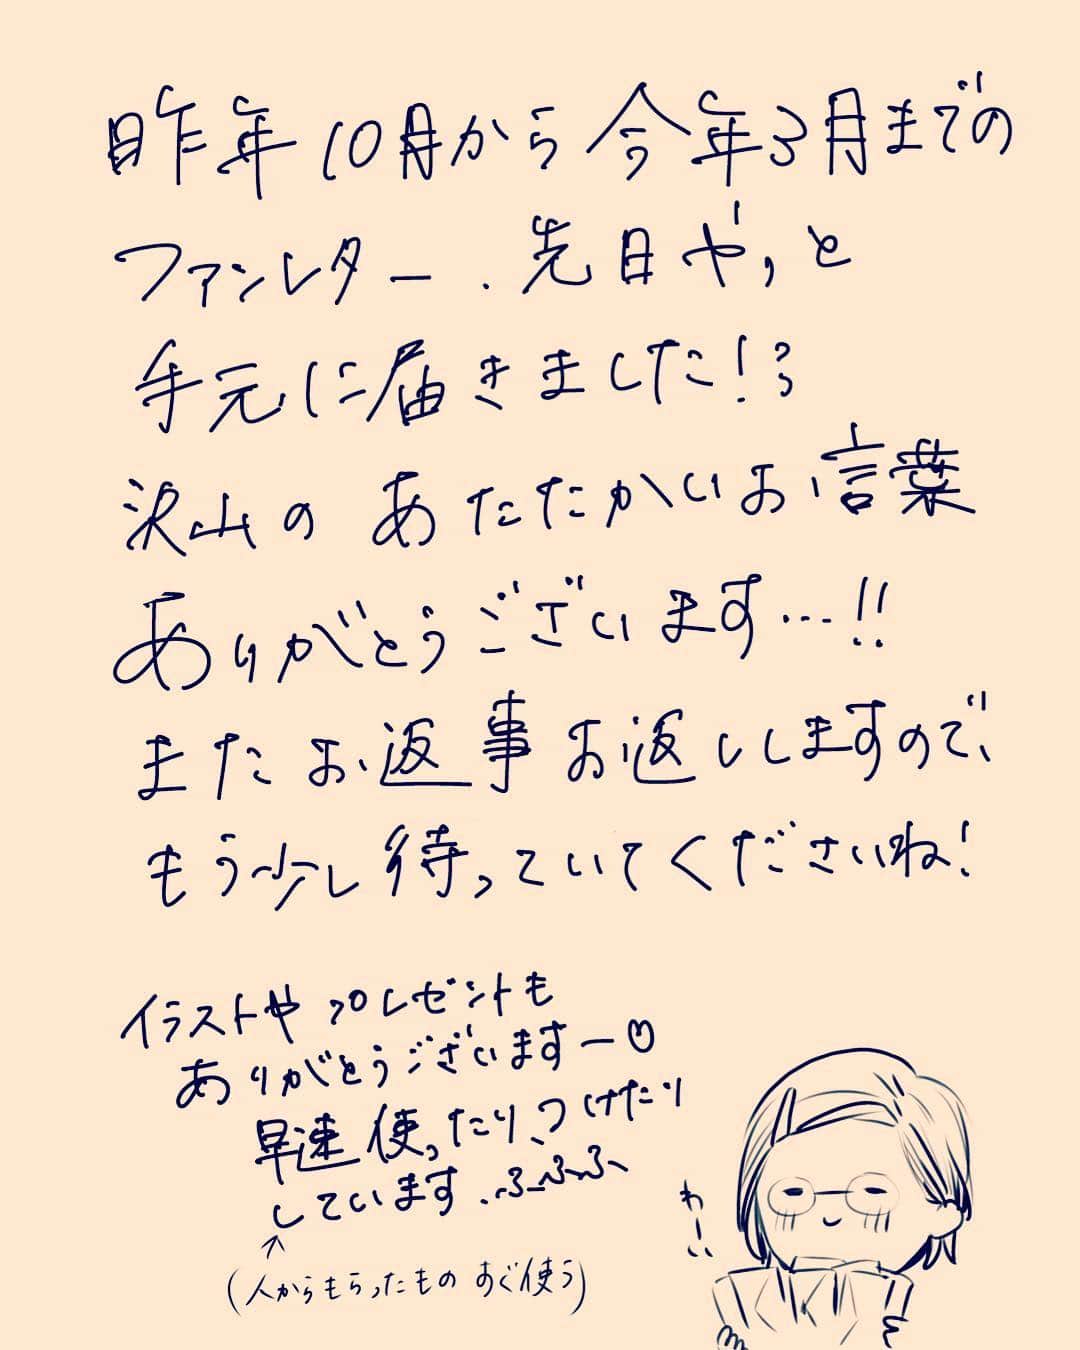 昨年10月から今年3月までの
ファンレター、先日やっと
手元に届きました!
沢山のあたたかいお言葉
ありがとうございます…!!
またお返事お返ししますので、
もう少し待っていてくださいね!
イラストやプレゼントも
ありがとうございますー♡
早速使ったり、つけたり
しています。ふふふ
↑
(人からもらったものすぐ使う)
わーい